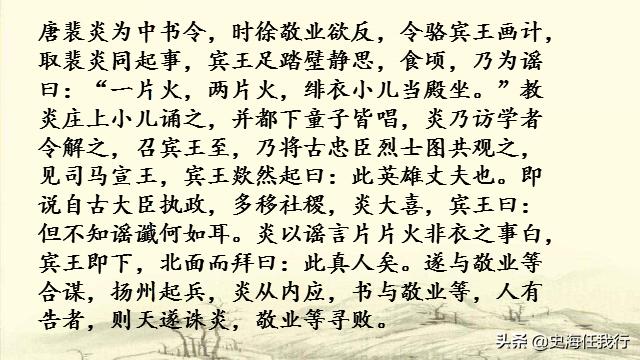 唐裴炎为中书令，时徐敬业欲反，令骆宾王画计，
取裴炎同起事，宾王足踏壁静思，食顷，乃为谣
曰：“一片火，两片火，绯衣小儿当殿坐。”教
炎庄上小儿诵之，并都下童子皆唱，炎乃访学者
令解之，召宾王至，乃将古忠臣烈士图共观之，
见司马宣王，宾王欻然起曰：此英雄丈夫也。即
说自古大臣执政，多移社稷，炎大喜，宾王曰：
但不知谣谶何如耳。炎以谣言片片火非衣之事白，
宾王即下，北面而拜曰：此真人矣。遂与敬业等
合谋，扬州起兵，炎从内应，书与敬业等，人有
告者，则天遂诛炎，敬业等寻败。
头条 @史海任我行